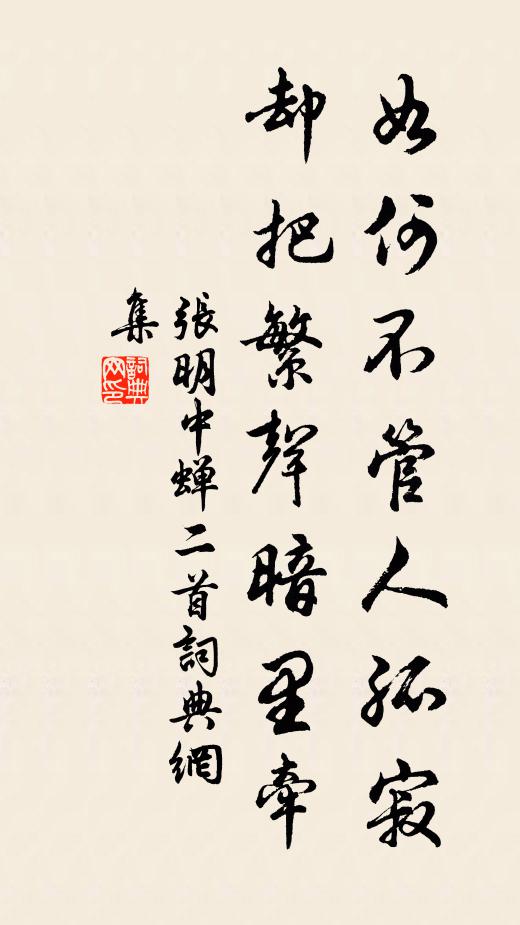 如何不管人孤寂
却把繁聲暗里牽
張明中蝉二首詞典網
集
詞典网印